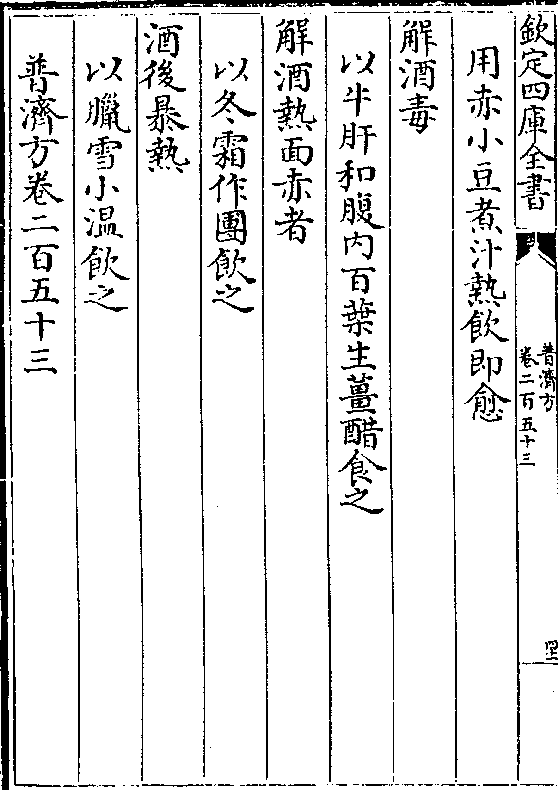 欽定四庫全書
普濟方
卷二百五十三
用赤小豆煮汁熱飲即愈
解酒毒
以牛肝和腹内百葉生薑醋食之
解酒熱面赤者
以冬霜作團飲之
酒後暴熱
以臘雪小溫飲之
普濟方卷二百五十三